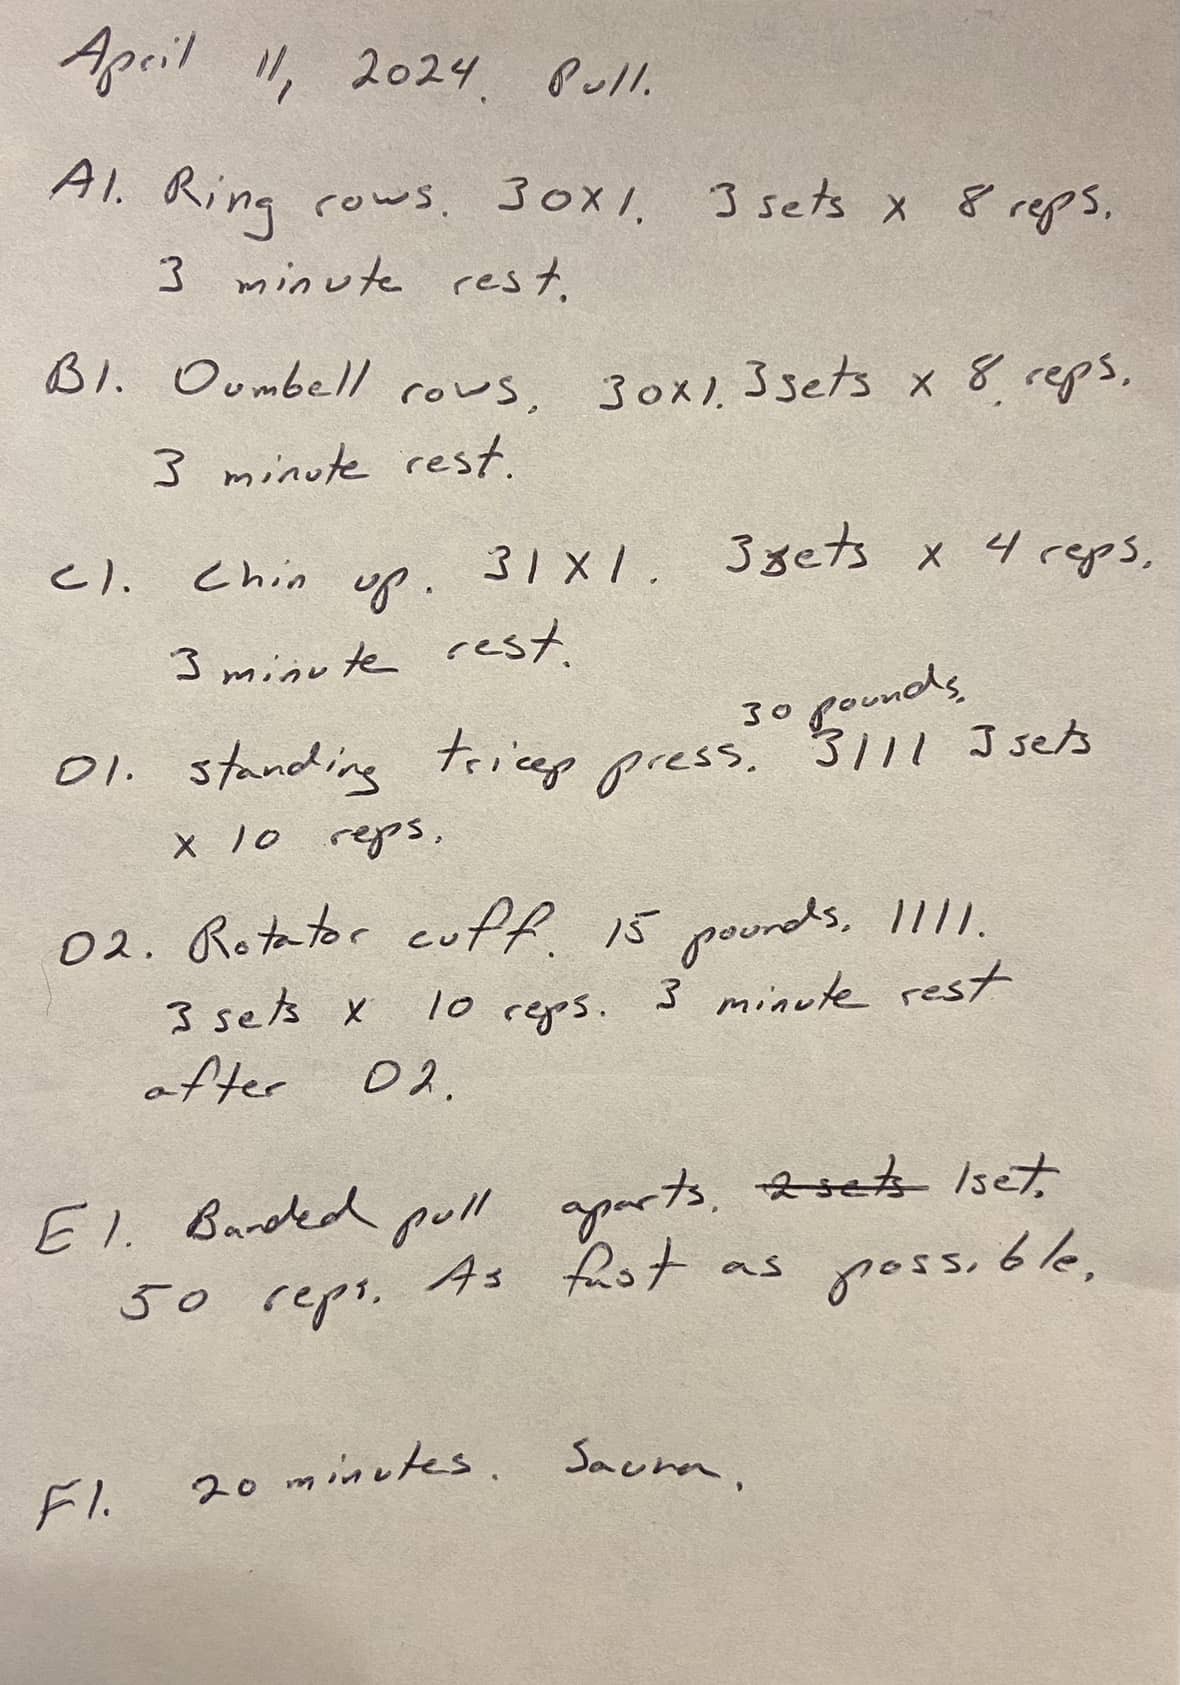 April 11, 2024. Pull.
A1. Ring rows. 30X1. 3 sets x 8 reps.
3 minute rest.
B1. Dumbell rows. 30X1. 3 sets x 8 reps.
3 minute rest.
C1. Chin up. 31X1. 3 sets x 4 reps.
3 minute rest.
30 pounds.
D1. standing tricep press. 3111 3 sets
x 10 reps.
D2. Rotator cuff. 15 pounds. 1111.
3 sets x 10 reps. 3 minute rest
after D2.
E1. Banded pull aparts. 2 sets 1 set.
50 reps. As fast as possible.
F1. 20 minutes. Sauna.